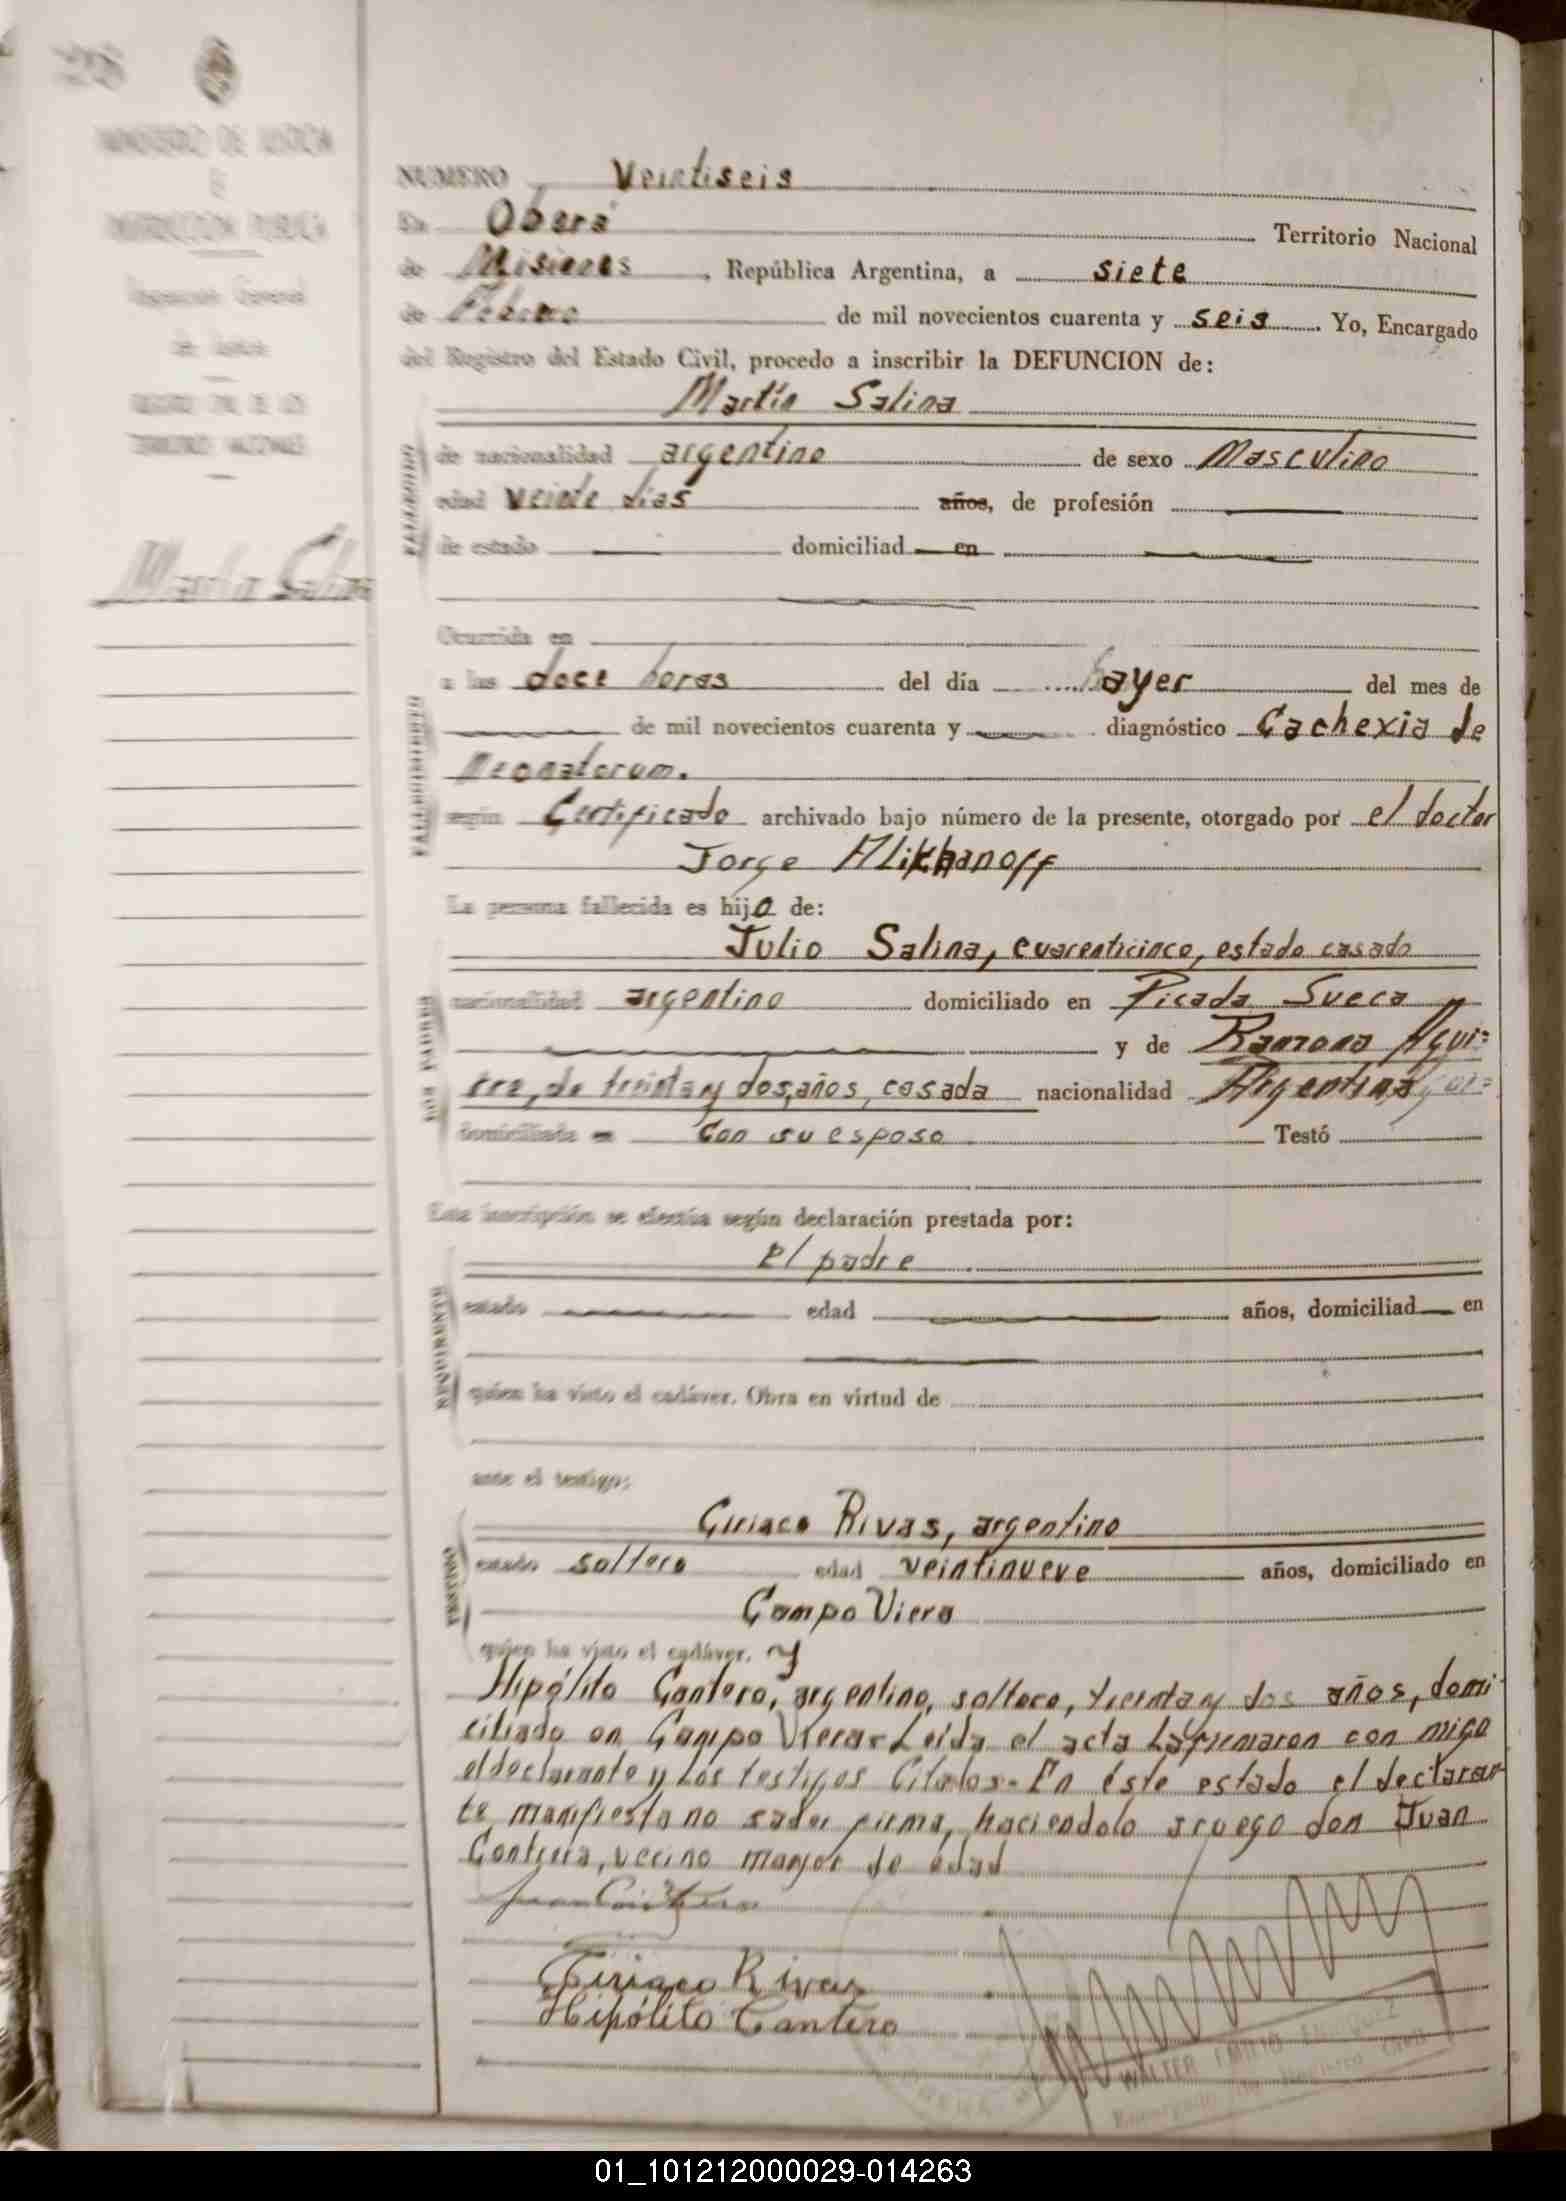 26
MINISTERIO DE JUSTICIA
E
INSTRUCCION PUBLICA
Inspección General
de Justicia
REGISTRO CIVIL DE LOS
TERRITORIOS NACIONALES
Martin Salina
NUMERO Veintiseis
En Oberá Territorio Nacional
de Misiones, República Argentina, a siete
de Febrero de mil novecientos cuarenta y seis. Yo, Encargado
del Registro del Estado Civil, procedo a inscribir la DEFUNCION de:
Martín Salina
de nacionalidad argentino de sexo Masculino
edad veinte dias años, de profesión
de estado domiciliad en
Ocurrida en
a las doce horas del día ayer del mes de
de mil novecientos cuarenta y diagnóstico Cachexia de
Neonatorum.
según Certificado archivado bajo número de la presente, otorgado por el doctor
Jorge Alikhanoff
La persona fallecida es hijo de:
Julio Salina, cuarenticinco, estado casado
LOS PADRES
nacionalidad argentino domiciliado en Picada Sueca
y de Ramona Agui=
rre, de treinta y dos, años, casada nacionalidad Argentina
domiciliada en Con su esposo Testó
Esta inscripción se efectúa según declaración prestada por:
El padre
REQUIRENTE
estado edad años, domiciliad en
quien ha visto el cadáver. Obra en virtud de
ante el testigo:
Ciriaco Rivas, argentino
TESTIGO
estado soltero edad veintinueve años, domiciliado en
Campo Viera
quien ha visto el cadáver. y
Hipólito Cantero, argentino, soltero, treinta y dos años, domi
ciliado en Campo Viera- Leída el acta la firmaron con migo
el declarante y los testigos Citados- En éste estado el declaran
te manifiesta no saber firmar, haciendolo a ruego don Juan
vecino mayor de edad
Ciriaco Rivas
Hipólito Cantero
WALTER EMILIO
Encargado de Registro Civil
01_101212000029-014263